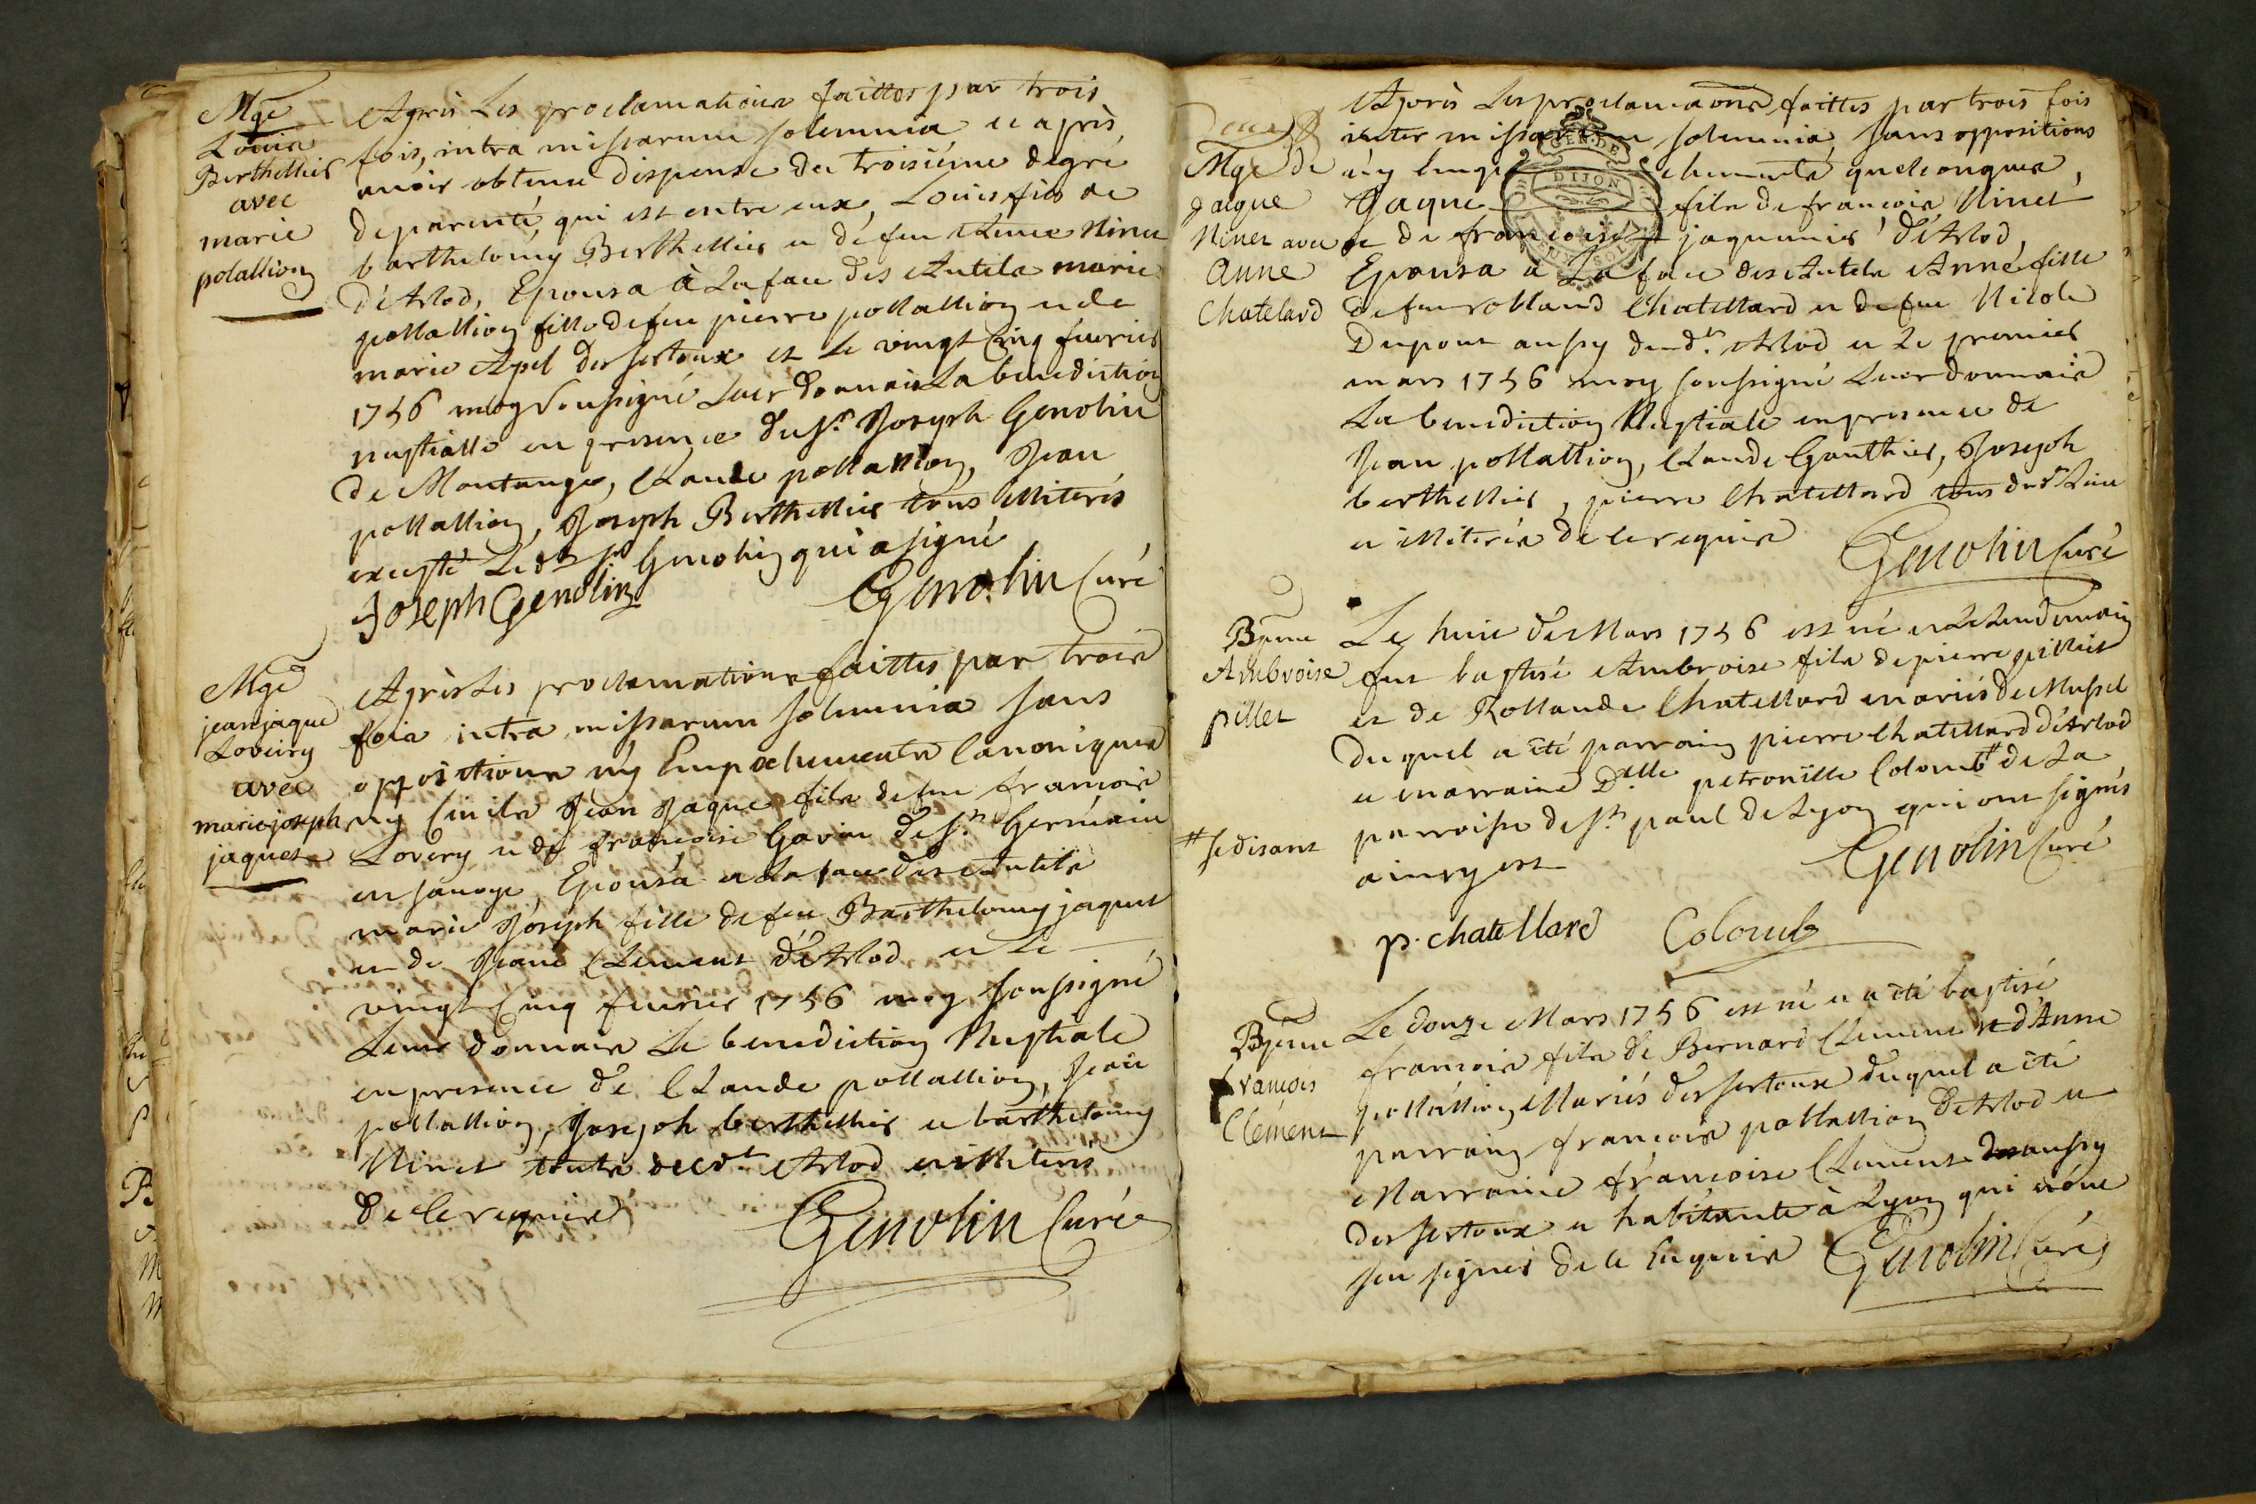 Mge
Louis
Berthellier
avec
marie
polallion
Après Les proclamations faittes par trois
fois, intra missarum solemnia et après
avoir obtenu dispense du troisiéme degré
de parenté, qui est entre eux, Louis fils de
barthelomy Berthellier et de feu Ninet
d'Arlod, Epousa à La face des Autels marie
pollallion fille de feu pierre pollallion et de
marie Apel des sertoux et le vingt cinq fevrier
1756 moy soussigné Leur donnais La benediction
nuptialle en presence du Sr. Joseph Genolin
de Montange, Claude pollallion, Jean
pollallion, Joseph Berthellier tous illiterés
excepté Le dt Sr Genolin qui a signé
Joseph Genolin Genolin Curé
Mge
jean jaque
Loveiry
avec
marie joseph
jaquet
Après Les proclamations faittes par trois
fois intra missarum solemnia sans
oppositions ny Empechements Canoniques
ny Civils Jean Jaque fils de feu francois
Lovery et de francoise Gavin de St. Germain
en savoye Epousa a La face des Autels
marie Joseph fille de feu Barthelomy jaquet
et de Jeane Clement d'Arlod et Le
vingt cinq fevrier 1756 moy soussigné
Leur donnais La benediction Nuptiale
en presence de Claude pollallion, Jean
pollallion, Joseph berthellier et barthelomy
Ninet touts dudt Arlod et illiterés
de ce requis
Genolin Curé
Mge de
Jaque
Ninet avec
Anne
Chatelard
Après Les proclamaons faittes par trois fois
inter missarum solemnia, sans oppositions
ny quelconques,
Jaque fils de francois Ninet
et de francoise jaquemier d'Arlod,
Epousa à La face des Autels Anne fille
de feu rolland Chatellard et de feu Nicole
Dupont aussy dudt. Arlod et Le premier
mars 1756 moy soussigné Leur donnais
La benediction Nuptiale en presence de
Jean pollallion, Claude Gauthier, Joseph
berthellier, pierre Chatellard tous dudt Lieu
et illiterés de ce requis
Genolin Curé
Bpeme
Ambroise
pillet
Le huit de Mars 1756 est né et Le Lendemain
fut baptisé Ambroise fils de pierre pillet
et de Rollande Chatellard mariés de Mussel
duquel a été parrain pierre Chatellard d'Arlod
et marraine Delle petronille Colomb # de La
parroisse de St paul de Lyon qui ont signés
# se disant
ainsy est
Genolin Curé
p. chatellard Colomb
Bpeme
françois
Clément
Le douze Mars 1756 est né et a été baptisé
francois fils de Bernard Clement et d'Anne
pollallion Mariés des sertoux duquel a été
parrain francois pollallion d'Arlod et
Marraine françoise Clement aussy
des sertoux et habitante à Lyon qui n'ont
sçu signer de ce Enquis
Genolin Curé
GEN. DE
DIJON